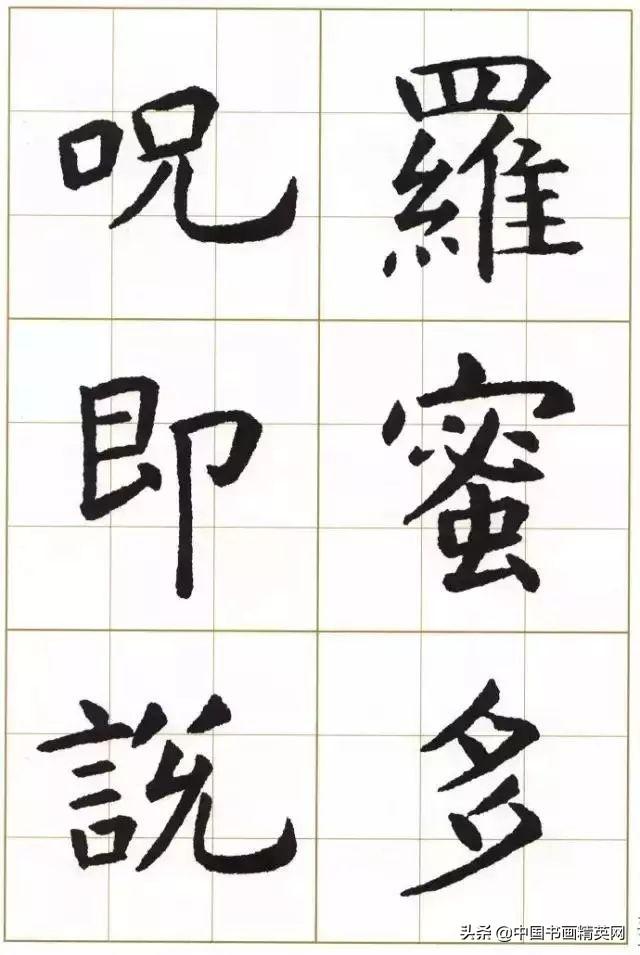 羅蜜多
呪即説
头条 @中国书画精英网